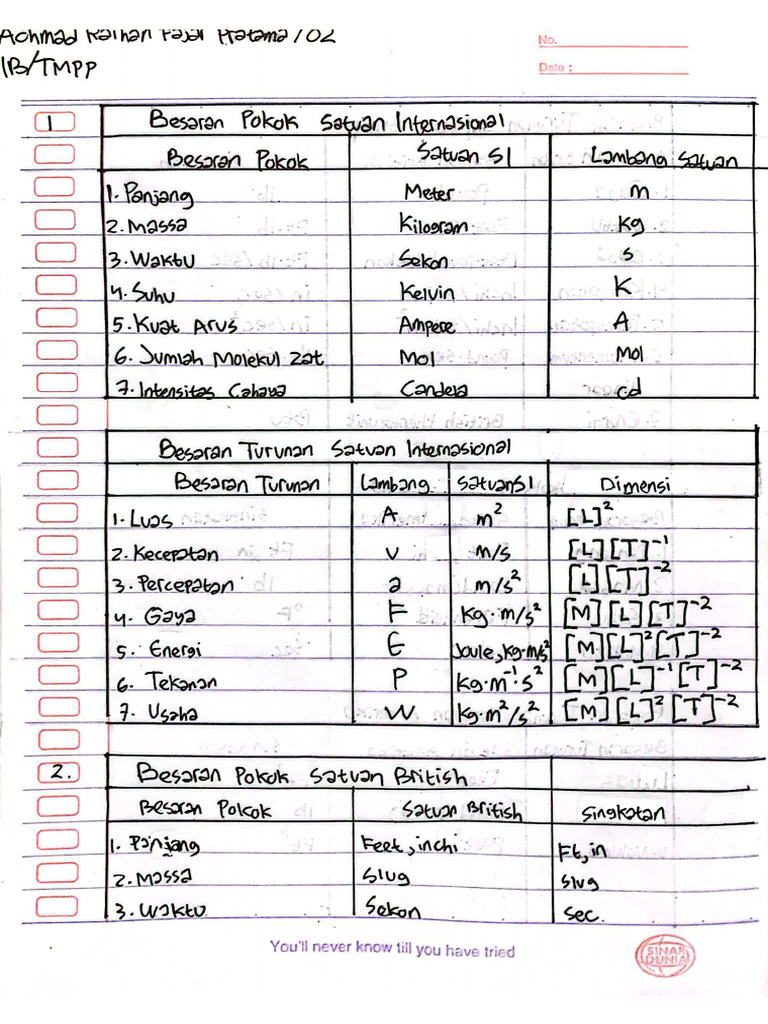 Achmad Raihan Fajar Pratama / 02
No.
1B/TMPP
Date :
1 Besaran Pokok Satuan Internasional
Besaran Pokok Satuan SI Lambang Satuan
1. Panjang Meter m
2. Massa Kilogram Kg
3. Waktu Sekon s
4. Suhu Kelvin K
5. Kuat Arus Ampere A
6. Jumlah Molekul Zat Mol Mol
7. Intensitas Cahaya Candela cd
Besaran Turunan Satuan Internasional
Besaran Turunan Lambang Satuan SI Dimensi
1. Luas A m² [L]²
2. Kecepatan v m/s [L][T]⁻¹
3. Percepatan a m/s² [L][T]⁻²
4. Gaya F Kg·m/s² [M][L][T]⁻²
5. Energi E Joule, kg·m/s² [M][L]²[T]⁻²
6. Tekanan P kg·m⁻¹·s² [M][L]⁻¹[T]⁻²
7. Usaha W kg·m²/s² [M][L]²[T]⁻²
2. Besaran Pokok Satuan British
Besaran Pokok Satuan British Singkatan
1. Panjang Feet, inchi Ft, in
2. Massa Slug slug
3. Waktu Sekon sec.
You'll never know till you have tried
SINAR DUNIA